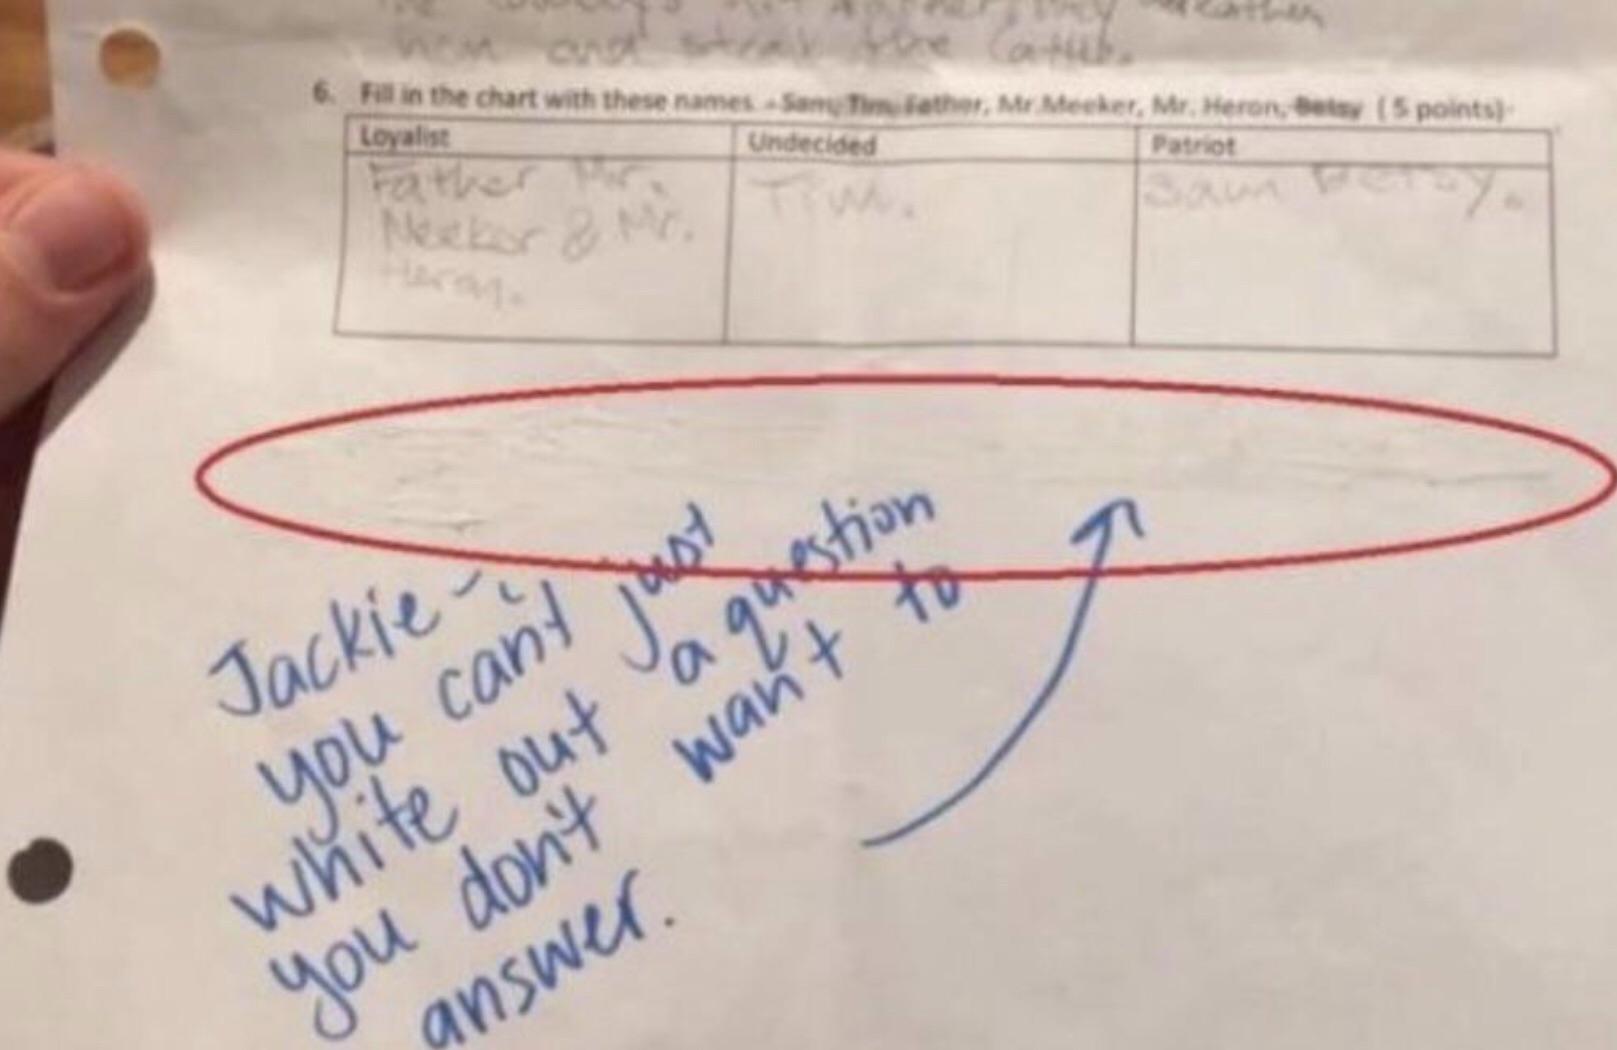 hen and steal the cattle.
6. Fill in the chart with these names. - Sam, Tim, Father, Mr. Meeker, Mr. Heron, Betsy (5 points)
Loyalist Undecided Patriot
Father Mr. Tim. Sam Betsy.
Meeker & Mr.
Heron.
Jackie -
you can't just
white out a question
you don't want to
answer.